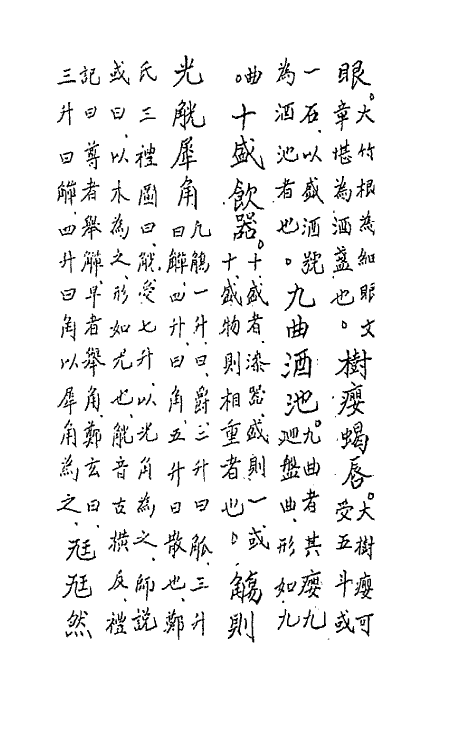 眼。
大竹根為細眼文
章堪為酒盞也。
樹癭蝎唇。
大樹癭可
受五斗或
一石以盛酒號
為酒池者也。
九曲酒池。
九曲者其癭九
廻盤曲形如九
曲。
十盛飲器。
十盛者漆器盛則一或
十盛物則相重者也。
觴則
光觥犀角
凡觴一升曰爵二升曰觚三升
曰觶四升曰角五升曰散也鄭
氏三禮圖曰觥受七升以光角為之師說
或曰以木為之形如尤也觥音古横反禮
記曰尊者舉觶卑者舉角鄭玄曰
三升曰觶四升曰角以犀角為之
尫尫然